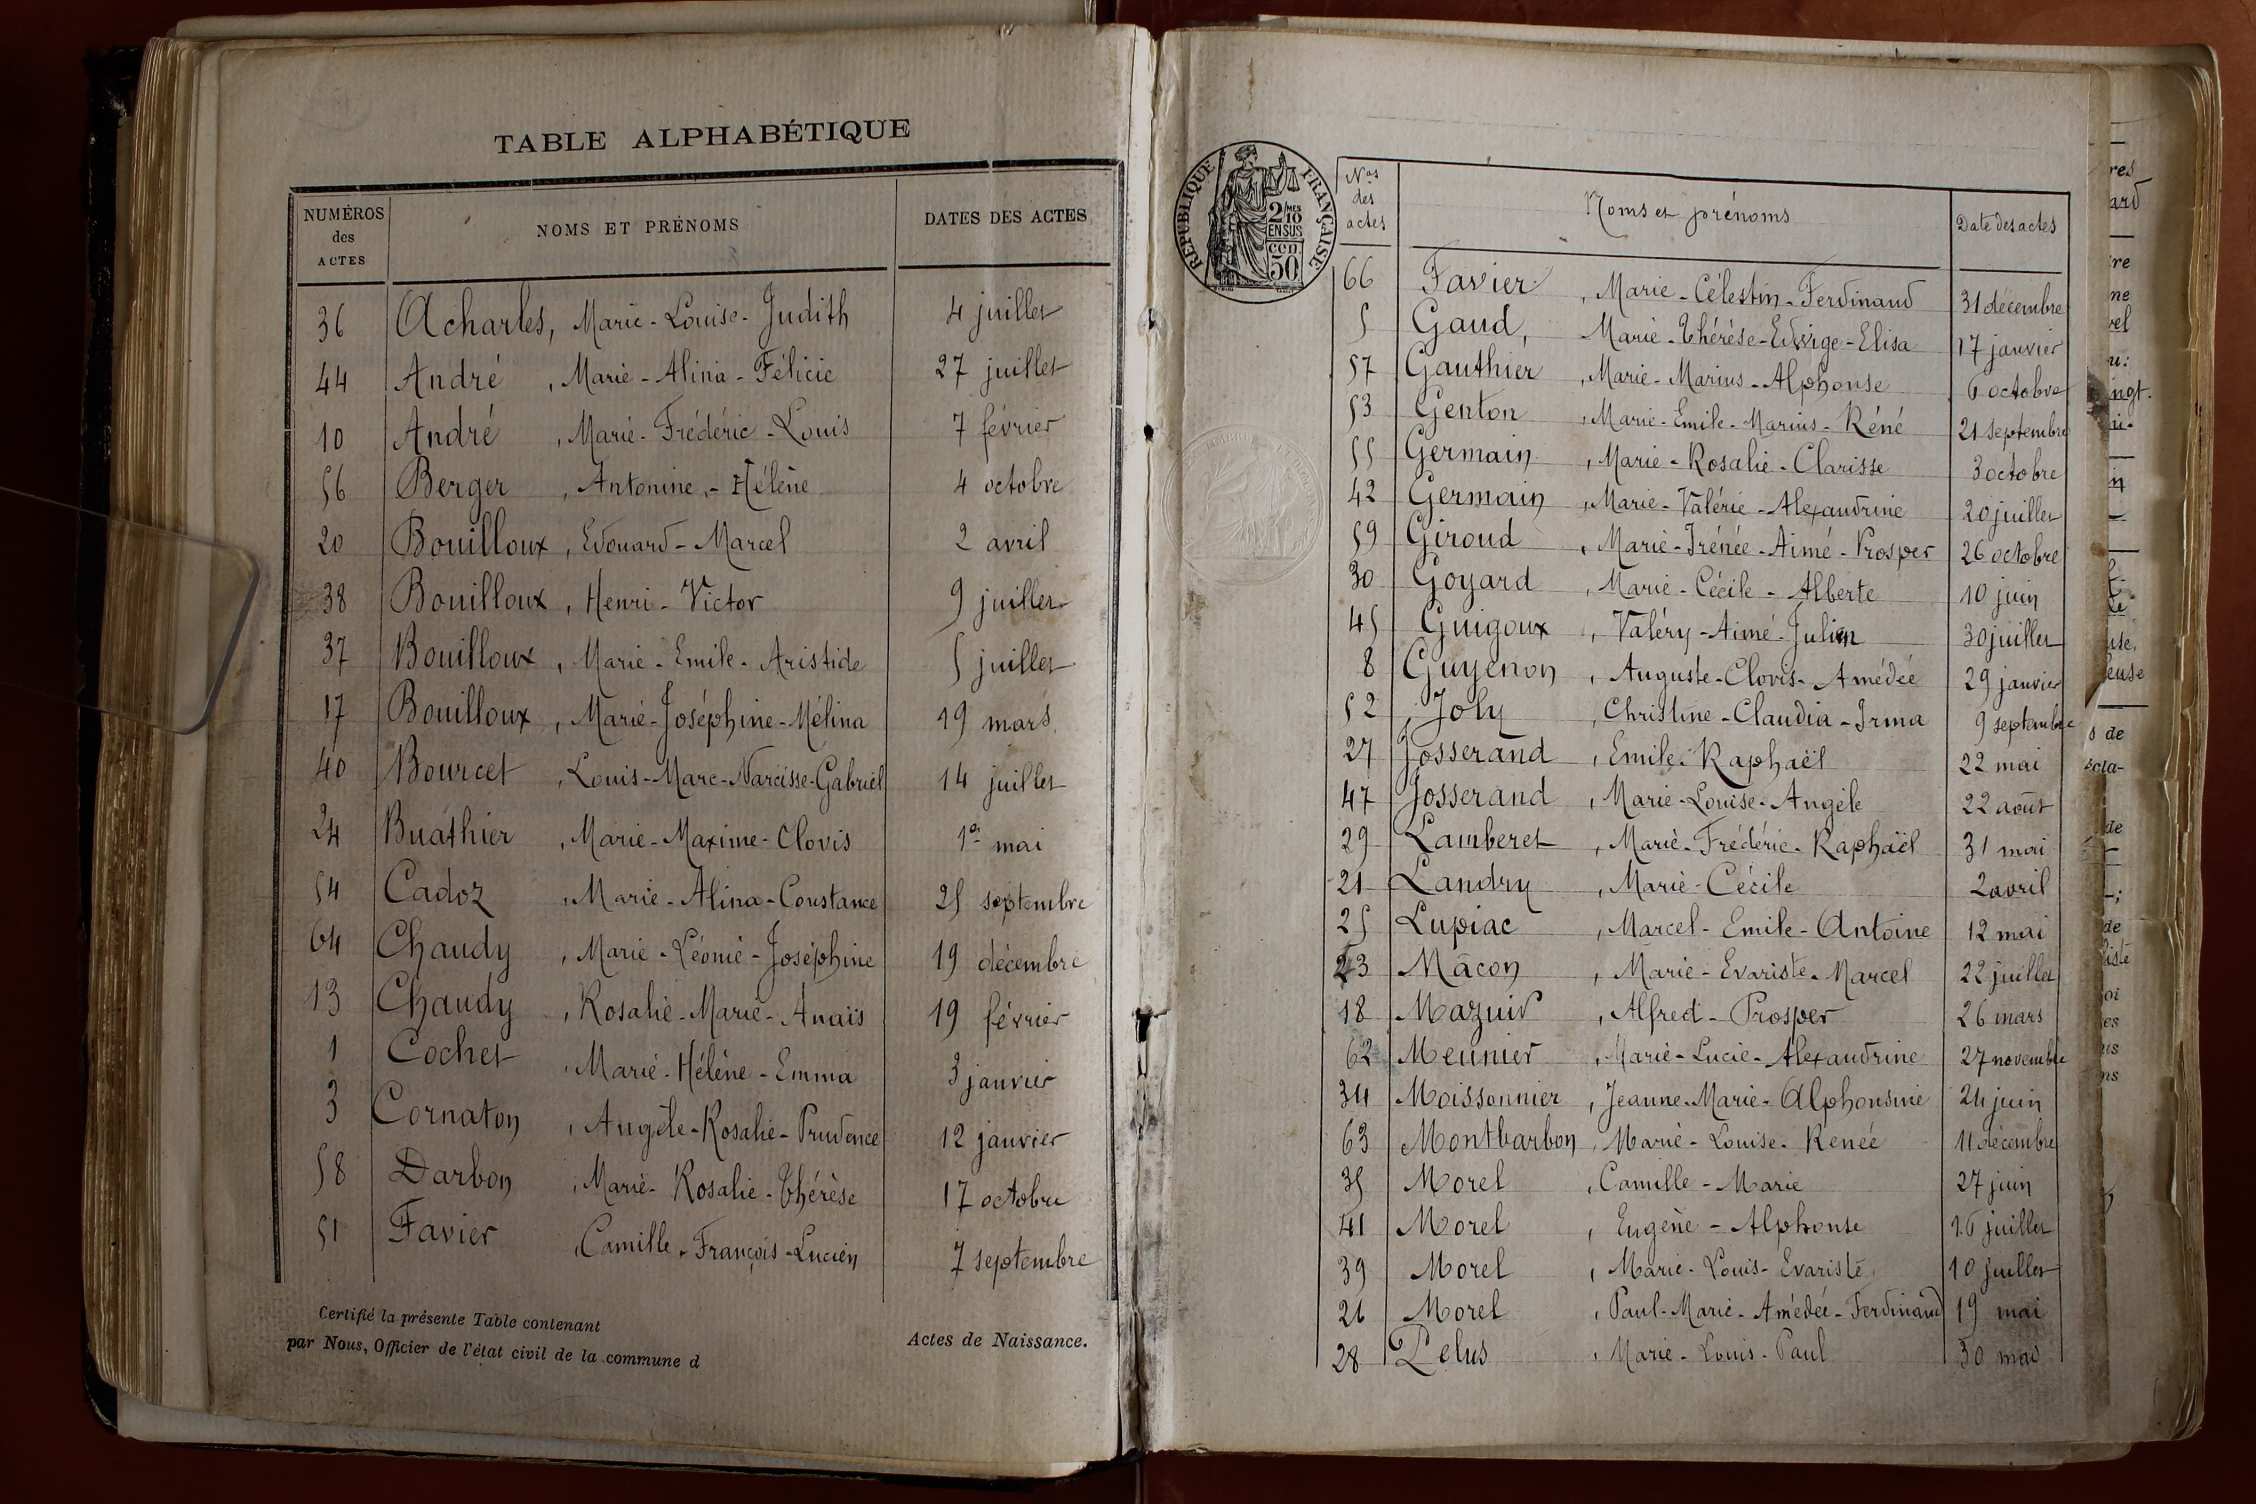 TABLE ALPHABÉTIQUE
NUMÉROS des ACTES NOMS ET PRÉNOMS DATES DES ACTES
36 Acharles, Marie-Louise-Judith 4 juillet
44 André, Marie-Alina-Félicie 27 juillet
10 André, Marie-Frédéric-Louis 7 février
56 Berger, Antonine-Hélène 4 octobre
20 Bouilloux, Edouard-Marcel 2 avril
38 Bouilloux, Henri-Victor 9 juillet
37 Bouilloux, Marie-Emile-Aristide 5 juillet
17 Bouilloux, Marie-Joséphine-Mélina 19 mars
40 Bourcet, Louis-Marc-Narcisse-Gabriel 14 juillet
24 Buathier, Marie-Maxime-Clovis 1er mai
54 Cadoz, Marie-Alina-Constance 25 septembre
64 Chaudy, Marie-Léonie-Joséphine 19 décembre
13 Chaudy, Rosalie-Marie-Anaïs 19 février
1 Cochet, Marie-Hélène-Emma 3 janvier
3 Cornaton, Angèle-Rosalie-Prudence 12 janvier
58 Darbon, Marie-Rosalie-Thérèse 17 octobre
51 Favier, Camille-François-Lucien 7 septembre
Certifié la présente Table contenant Actes de Naissance.
par Nous, Officier de l'état civil de la commune d
RÉPUBLIQUE FRANÇAISE
2/10 MES
EN SUS
50 cen
Nos des actes Noms et prénoms Date des actes
66 Favier, Marie-Célestin-Ferdinand 31 décembre
5 Gaud, Marie-Thérèse-Edwige-Elisa 17 janvier
57 Gauthier, Marie-Marius-Alphonse 6 octobre
53 Genton, Marie-Emile-Marius-Réné 21 septembre
55 Germain, Marie-Rosalie-Clarisse 3 octobre
42 Germain, Marie-Valérie-Alexandrine 20 juillet
59 Giroud, Marie-Irénée-Aimé-Prosper 26 octobre
30 Goyard, Marie-Cécile-Alberte 10 juin
45 Guigoux, Valéry-Aimé-Julien 30 juillet
8 Guyenon, Auguste-Clovis-Amédée 29 janvier
52 Joly, Christine-Claudia-Irma 9 septembre
27 Josserand, Emile-Raphaël 22 mai
47 Josserand, Marie-Louise-Angèle 22 août
29 Lamberet, Marie-Frédéric-Raphaël 31 mai
21 Landry, Marie-Cécile 2 avril
25 Lupiac, Marcel-Emile-Antoine 12 mai
23 Mâcon, Marie-Evariste-Marcel 22 juillet
18 Mazuir, Alfred-Prosper 26 mars
62 Meunier, Marie-Lucie-Alexandrine 27 novembre
34 Moissonnier, Jeanne-Marie-Alphonsine 24 juin
63 Montbarbon, Marie-Louise-Renée 11 décembre
35 Morel, Camille-Marie 27 juin
41 Morel, Eugène-Alphonse 16 juillet
39 Morel, Marie-Louis-Evariste 10 juillet
26 Morel, Paul-Marie-Amédée-Ferdinand 19 mai
28 Pelus, Marie-Louis-Paul 30 mai